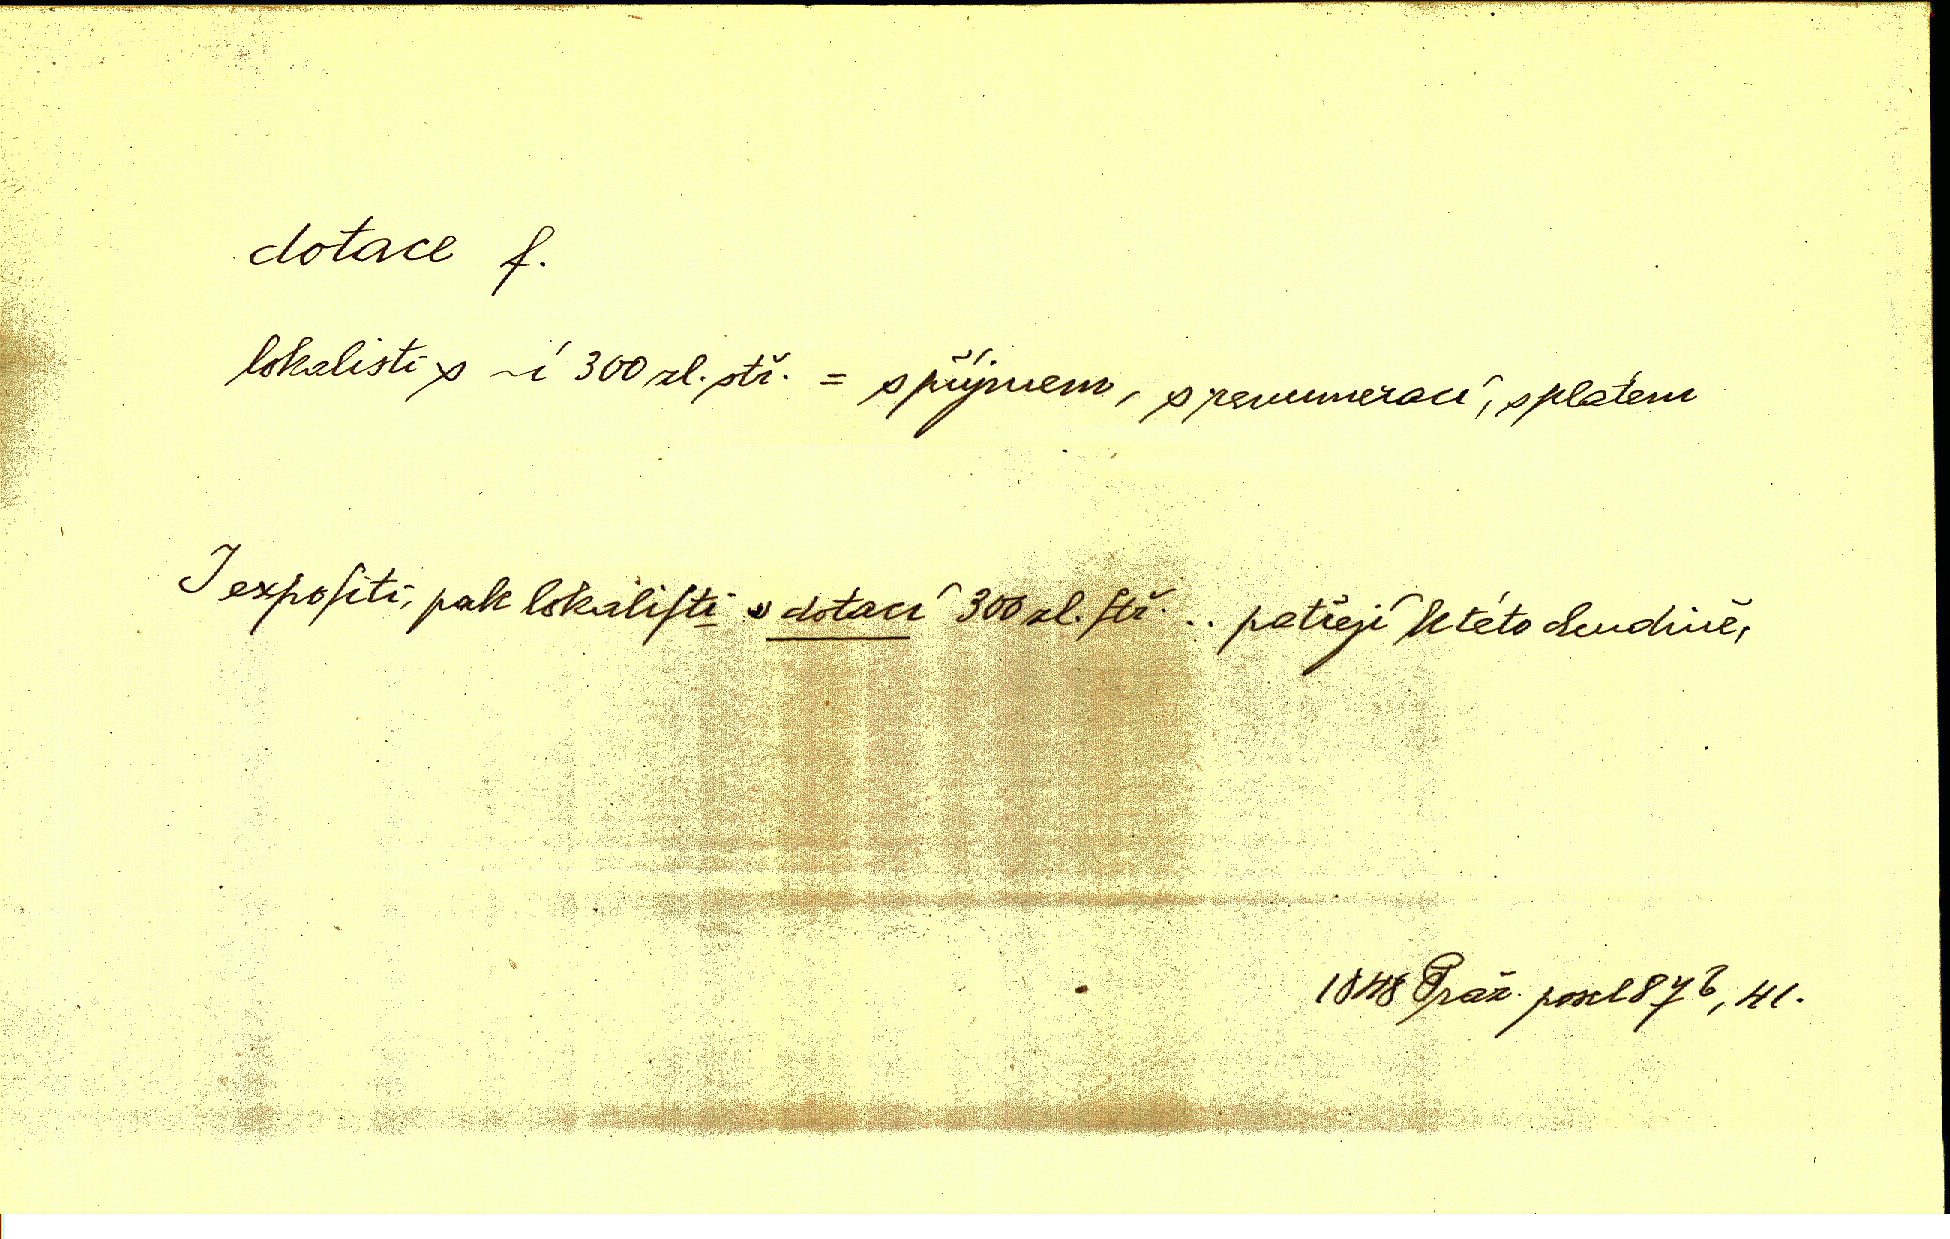 dotace f.
lokalisti s ~í 300 zl. stř. = s příjmem, s remunerací, s platem
I expoſiti, pak lokaliſti s dotací 300 zl. ſtř. .. patřejí k této chudině,
1848 Praž. posel 87b, 41.